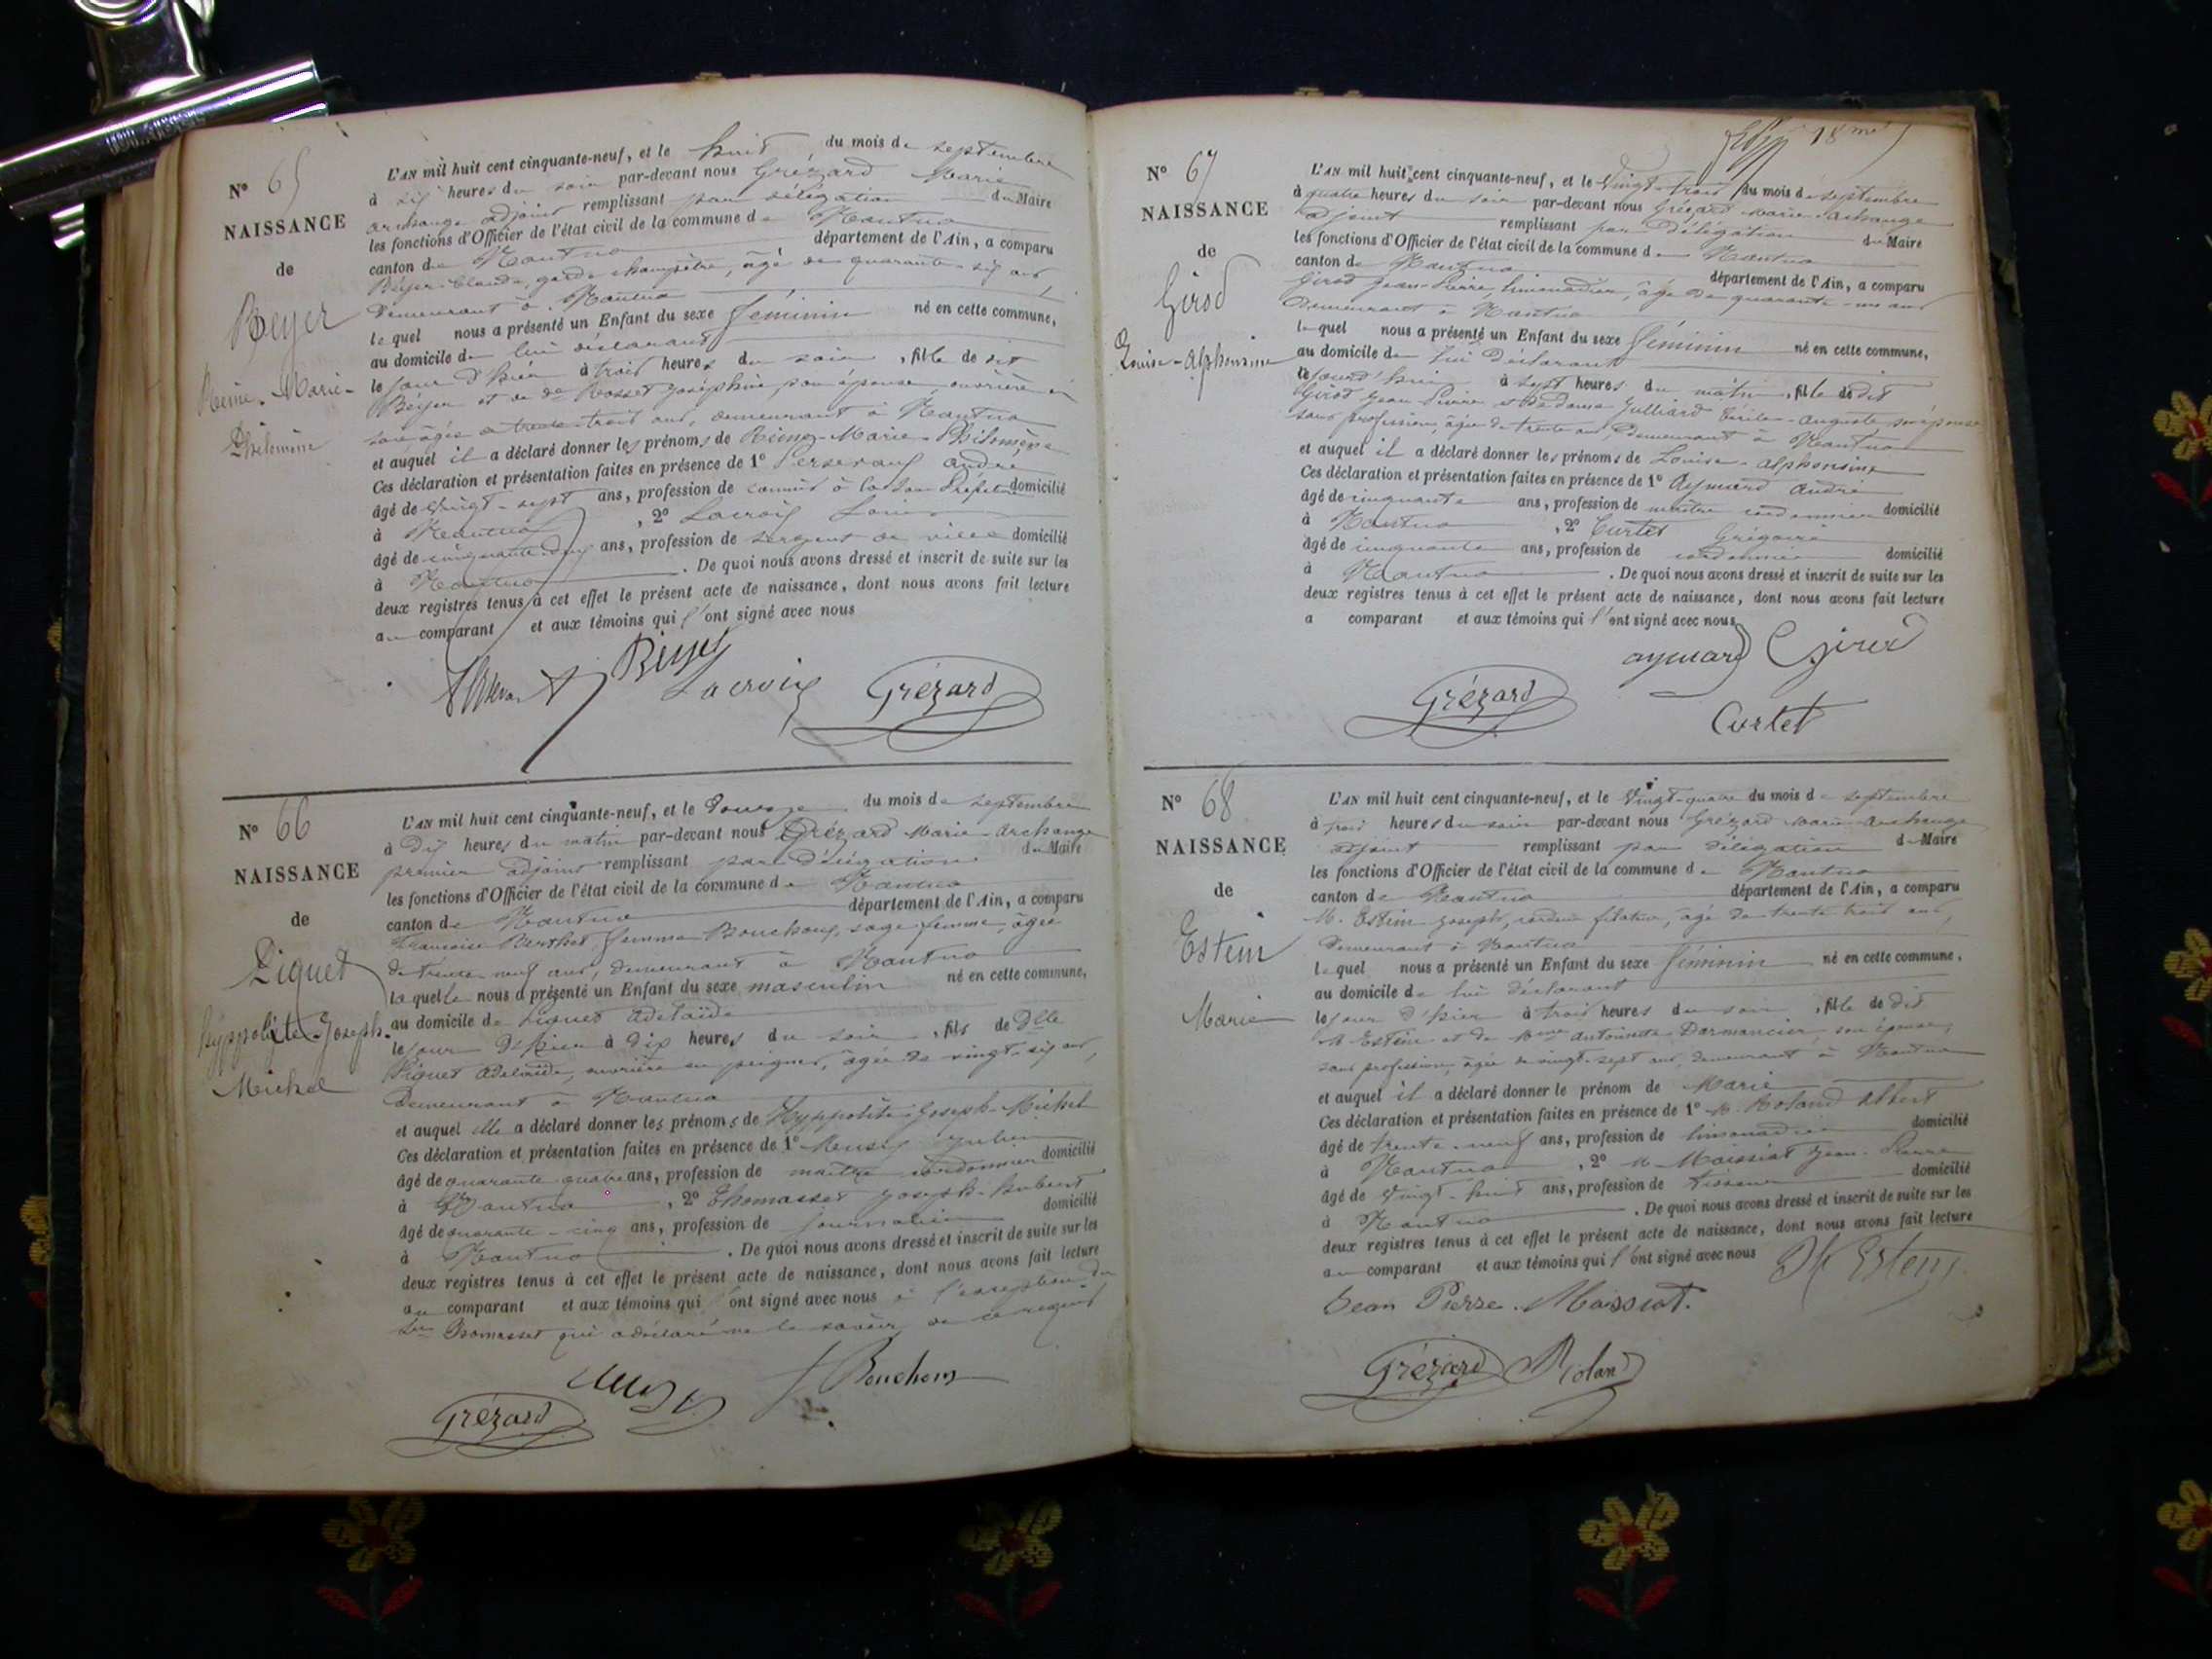 N° 65
NAISSANCE
de
Beyer
Reine-Marie-
Philomène
L'AN mil huit cent cinquante-neuf, et le huit du mois de septembre
à six heures du soir par-devant nous Grézard Marie
archange adjoint remplissant par délégation du Maire
les fonctions d'Officier de l'état civil de la commune de Nantua
canton de Nantua département de l'Ain, a comparu
Béyer Claude, garde champêtre, âgé de quarante-six ans,
demeurant à Nantua
lequel nous a présenté un Enfant du sexe féminin né en cette commune,
au domicile de lui déclarant
le jour d'hier à trois heures du soir, fille de dit
Béyer et de de Rosset Joséphine, son épouse, ouvrière en
soie âgée de trente-trois ans, demeurant à Nantua
et auquel il a déclaré donner les prénoms de Reine-Marie-Philomène
Ces déclaration et présentation faites en présence de 1° André
âgé de vingt-sept ans, profession de commis à la Sous Préfecture domicilié
à Nantua, 2° Lacroix Louis
âgé de cinquante-deux ans, profession de sergent de ville domicilié
à Nantua. De quoi nous avons dressé et inscrit de suite sur les
deux registres tenus à cet effet le présent acte de naissance, dont nous avons fait lecture
au comparant et aux témoins qui l'ont signé avec nous
Beyer
Lacroix Grézard
N° 66
NAISSANCE
de
Piquet
hyppolite-Joseph-
Michel
L'AN mil huit cent cinquante-neuf, et le douze du mois de septembre
à dix heures du matin par-devant nous Grézard Marie-archange
premier adjoint remplissant par délégation du Maire
les fonctions d'Officier de l'état civil de la commune de Nantua
canton de Nantua département de l'Ain, a comparu
Françoise Berthet femme Bouchoux, sage femme, âgée
de trente-neuf ans, demeurant à Nantua
laquelle nous a présenté un Enfant du sexe masculin né en cette commune,
au domicile de Piquet Adelaïde
le jour d'hier à dix heures du soir, fils de Dlle
Piquet Adelaïde, ouvrière en peignes, âgée de vingt-six ans,
demeurant à Nantua
et auquel elle a déclaré donner les prénoms de Hyppolite-Joseph-Michel
Ces déclaration et présentation faites en présence de 1° Julien
âgé de quarante quatre ans, profession de maître cordonnier domicilié
à Nantua, 2° Thomasset Joseph-hubert
âgé de quarante-cinq ans, profession de journalier domicilié
à Nantua. De quoi nous avons dressé et inscrit de suite sur les
deux registres tenus à cet effet le présent acte de naissance, dont nous avons fait lecture
au comparant et aux témoins qui l'ont signé avec nous à l'exception du
Sr Thomasset qui a déclaré ne le savoir de ce requis
Bouchoux
Grézard
18me
N° 67
NAISSANCE
de
Girod
Louise-Alphonsine
L'AN mil huit cent cinquante-neuf, et le vingt-trois du mois de septembre
à quatre heures du soir par-devant nous Grézard Marie-Archange
adjoint remplissant par délégation du Maire
les fonctions d'Officier de l'état civil de la commune de Nantua
canton de Nantua département de l'Ain, a comparu
Girod Jean-Pierre, limonadier, âgé de quarante-un ans
demeurant à Nantua
lequel nous a présenté un Enfant du sexe féminin né en cette commune,
au domicile de lui déclarant
le jourd'hui à sept heures du matin, fille de dit
Girod Jean Pierre et de dame Julliard Cécile-Auguste son épouse
sans profession, âgée de trente ans, demeurant à Nantua
et auquel il a déclaré donner les prénoms de Louise-Alphonsine
Ces déclaration et présentation faites en présence de 1° Aymard André
âgé de cinquante ans, profession de maître cordonnier domicilié
à Nantua, 2° Curtet Grégoire
âgé de cinquante ans, profession de cordonnier domicilié
à Nantua. De quoi nous avons dressé et inscrit de suite sur les
deux registres tenus à cet effet le présent acte de naissance, dont nous avons fait lecture
a comparant et aux témoins qui l'ont signé avec nous
aymard Girod
Grézard
Curtet
N° 68
NAISSANCE
de
Estein
Marie
L'AN mil huit cent cinquante-neuf, et le vingt-quatre du mois de septembre
à trois heures du soir par-devant nous Grézard Marie-Archange
adjoint remplissant par délégation du Maire
les fonctions d'Officier de l'état civil de la commune de Nantua
canton de Nantua département de l'Ain, a comparu
M. Estein Joseph, filateur, âgé de trente trois ans,
demeurant à Nantua
lequel nous a présenté un Enfant du sexe féminin né en cette commune,
au domicile de lui déclarant
le jour d'hier à trois heures du soir, fille de dit
M. Estein et de Mme Antoinette Darmancier, son épouse,
sans profession, âgée de vingt-sept ans, demeurant à Nantua
et auquel il a déclaré donner le prénom de Marie
Ces déclaration et présentation faites en présence de 1° M. Roland Albert
âgé de trente-neuf ans, profession de limonadier domicilié
à Nantua, 2° M. Maissiat Jean-Pierre
âgé de vingt-huit ans, profession de tisseur domicilié
à Nantua. De quoi nous avons dressé et inscrit de suite sur les
deux registres tenus à cet effet le présent acte de naissance, dont nous avons fait lecture
au comparant et aux témoins qui l'ont signé avec nous
Estein
Jean Pierre Maissiat.
Grézard Roland